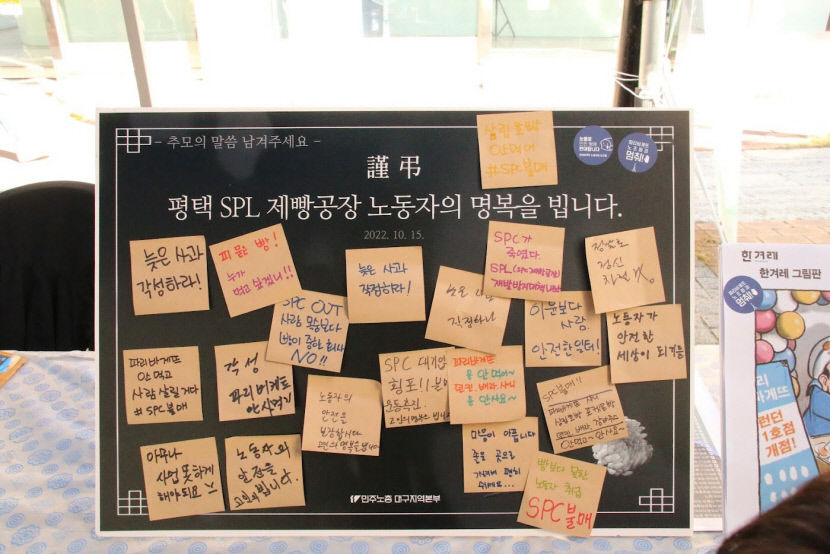 - 추모의 말씀 남겨주세요 -
謹弔
평택 SPL 제빵공장 노동자의 명복을 빕니다.
2022. 10. 15.
삼립호빵
안먹어
#SPC불매
멈춰!
늦은 사과
각성하라!
피 묻은 빵!
누가
먹고 싶겠니!!
SPC OUT
사람 목숨보다
빵이 중한 회사
NO!!
늦은 사과
각성하라!
SPC가
죽였다.
SPL(SPC계열공장)
재발방지대책
정신
차려
이윤보다
사람.
안전한 일터!
노동자가
안전한
세상이 되기를
파리바게뜨
안먹고
사람 살릴거다
#SPC불매
각성
파리바게트
안사먹기
노동자의
안전을
보장합시다
고인의 명복을 빕니다
SPC 대기업
횡포!!
파리바게뜨
빵 안먹어~
던킨, 배라, 샤니
안사요~
SPC불매!!
안먹고~ 안사요~
사업 못하게
해야되요
노동자의
안전을
고인의
빕니다.
마음이 아픕니다
좋은 곳으로
가셔서 편히
쉬세요...
빵보다 못한
노동자 취급
SPC불매
민주노총 대구지역본부
한겨레
한겨레 그림판
멈춰!
런던
1호점
개점!